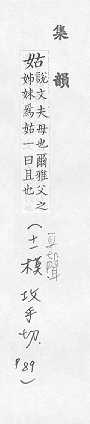 集韻
姑 說文夫母也爾雅父之
姊妹爲姑一曰且也
(十一模 攻乎切.
P89)